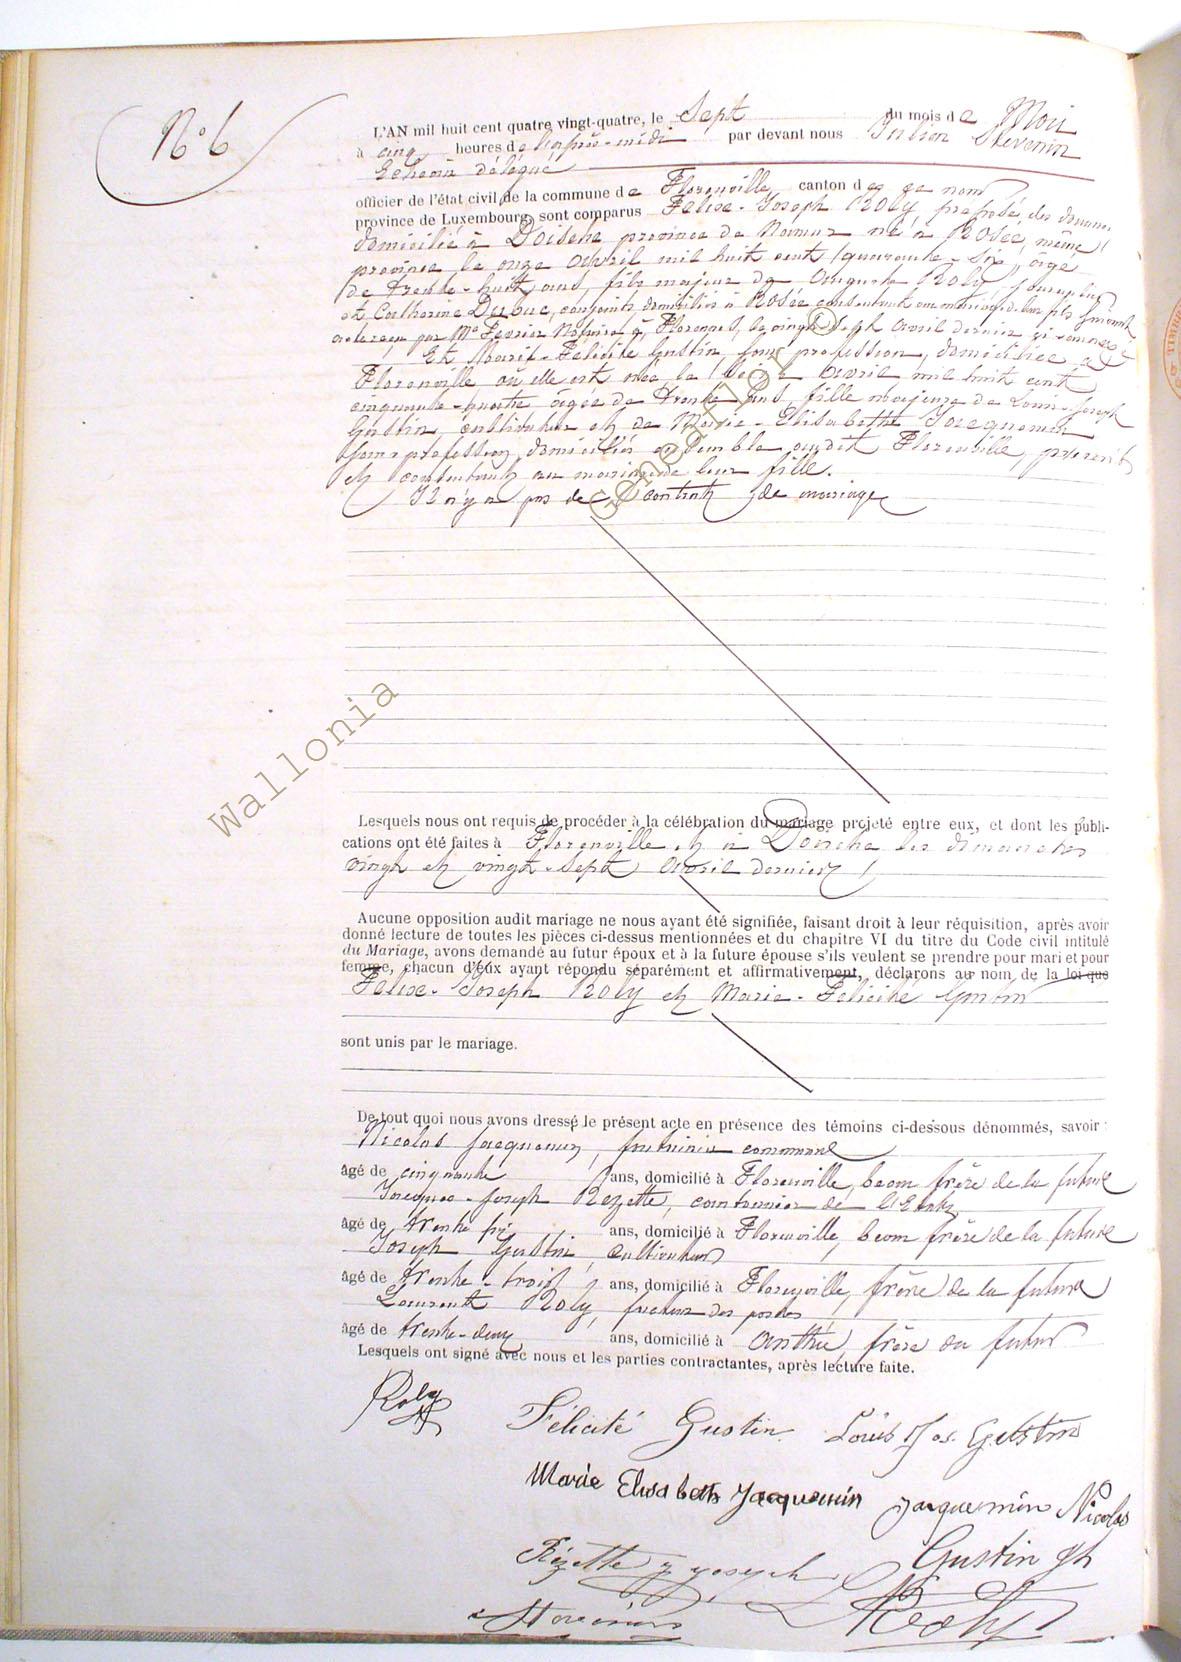 N° 6
L'AN mil huit cent quatre vingt-quatre, le Sept du mois de Mai
à cinq heures de l'après-midi par devant nous Julien Stévenin
Echevin délégué
officier de l'état civil de la commune de Florenville canton de ce nom
province de Luxembourg, sont comparus Félix-Joseph Roly préposé des douanes
domicilié à Doische province de Namur né à Rosée, même
province le onze Avril mil huit cent quarante-six, âgé
de trente-huit ans, fils majeur de Auguste Roly, journalier
et Catherine conjoints domiciliés à Rosée consentant au mariage de leur fils suivant
acte reçu par Me Notaire à Florennes, le vingt sept Avril dernier ci-annexé
Et Marie-Félicité Gustin, sans profession, domiciliée à
Florenville où elle est née le Avril mil huit cent
cinquante-quatre âgée de trente ans, fille majeure de Louis-Joseph
Gustin, cultivateur et de Marie-Elisabeth Jacquemin
sans profession, domiciliés ensemble audit Florenville, présents
et consentant au mariage de leur fille.
Il n'y a pas de contrat de mariage
Wallonia
Généalogie ©
Lesquels nous ont requis de procéder à la célébration du mariage projeté entre eux, et dont les publi-
cations ont été faites à Florenville et à Doische les dimanches
vingt et vingt-sept Avril dernier
Aucune opposition audit mariage ne nous ayant été signifiée, faisant droit à leur réquisition, après avoir
donné lecture de toutes les pièces ci-dessus mentionnées et du chapitre VI du titre du Code civil intitulé
du Mariage, avons demandé au futur époux et à la future épouse s'ils veulent se prendre pour mari et pour
femme, chacun d'eux ayant répondu séparément et affirmativement, déclarons au nom de la loi que
Félix-Joseph Roly et Marie-Félicité Gustin
sont unis par le mariage.
De tout quoi nous avons dressé le présent acte en présence des témoins ci-dessous dénommés, savoir :
Nicolas Jacquemin, communal
âgé de cinquante ans, domicilié à Florenville, beau frère de la future
Jacques-Joseph Rezette, cantonnier de l'Etat,
âgé de trente six ans, domicilié à Florenville, beau frère de la future
Joseph Gustin, cultivateur
âgé de trente-trois ans, domicilié à Florenville, frère de la future
Laurent Roly, facteur des postes
âgé de trente-deux ans, domicilié à Anthée, frère du futur
Lesquels ont signé avec nous et les parties contractantes, après lecture faite.
Roly
Félicité Gustin Louis Jos. Gustin
Marie Elisabeth Jacquemin Jacquemin Nicolas
Rézette j joseph Gustin jh
L Roly
Stévenin